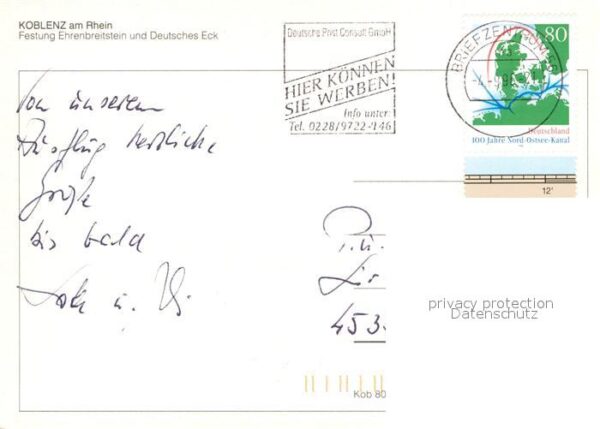 KOBLENZ am Rhein
Festung Ehrenbreitstein und Deutsches Eck
Deutsche Post Consult GmbH
HIER KÖNNEN
SIE WERBEN!
Info unter:
Tel. 0228/9722-146
BRIEFZENTRUM 56
80
Deutschland
100 Jahre Nord-Ostsee-Kanal
12'
Von unserem
Ausflug herzliche
Grüße
bis bald
u.
453
privacy protection
Datenschutz
Kob 80